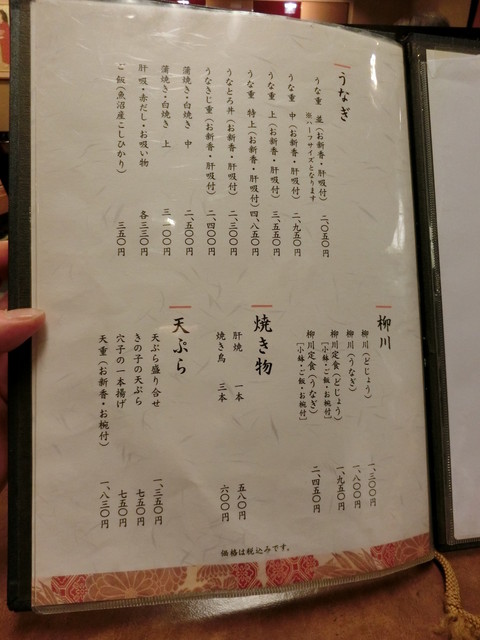 うなぎ
うな重 並（お新香・肝吸付） 二、〇五〇円
※ハーフサイズとなります
うな重 中（お新香・肝吸付） 二、九五〇円
うな重 上（お新香・肝吸付） 三、五五〇円
うな重 特上（お新香・肝吸付） 四、八五〇円
うなとろ丼（お新香・肝吸付） 二、三〇〇円
うなきじ重（お新香・肝吸付） 二、四〇〇円
蒲焼き・白焼き 中 二、五〇〇円
蒲焼き・白焼き 上 三、一〇〇円
肝吸・赤だし・お吸い物 各三三〇円
ご飯（魚沼産こしひかり） 三五〇円
柳川
柳川（どじょう） 一、三〇〇円
柳川（うなぎ） 一、八〇〇円
柳川定食（どじょう） 一、九五〇円
［小鉢・ご飯・お椀付］
柳川定食（うなぎ） 二、四五〇円
［小鉢・ご飯・お椀付］
焼き物
肝焼 一本 五八〇円
焼き鳥 三本 六〇〇円
天ぷら
天ぷら盛り合せ 一、三五〇円
きの子の天ぷら 七五〇円
穴子の一本揚げ 七五〇円
天重（お新香・お椀付） 一、八三〇円
価格は税込みです。